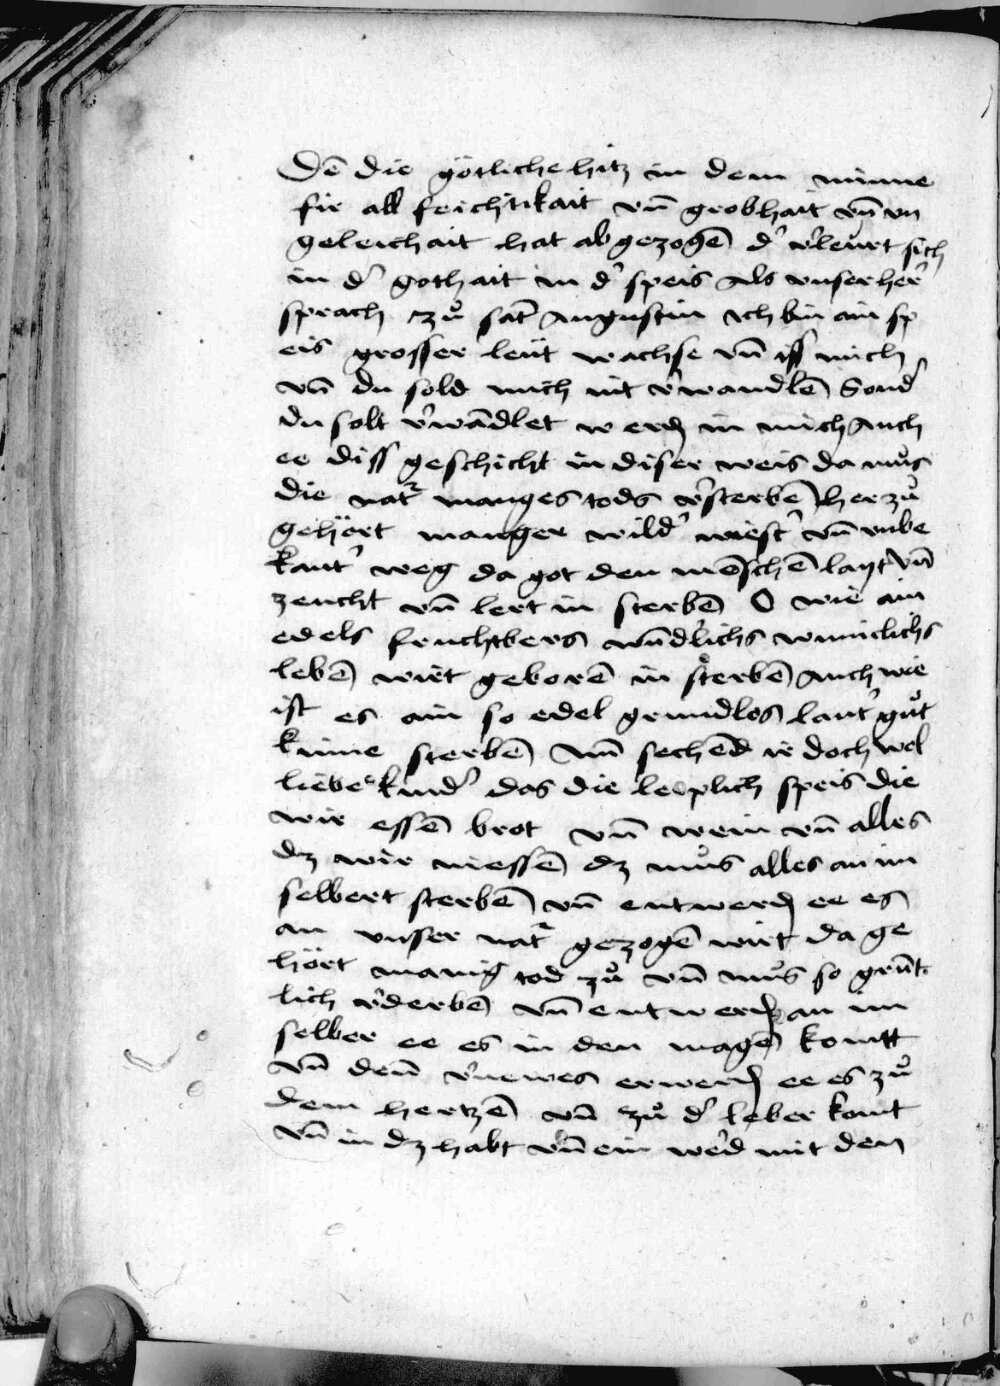 Dē die götliche hitz in dem minne
fir all feichtikait vn̄ grobhait vn̄ vn
geleichait hat ab gezogē d' v'leurt sich
in d' gothait in d' speis Als vnser her'
sprach zů sāt Augustin Ich bin ain sp
eis grosser leüt wachse vn̄ iss mich
vn̄ du sold mich nit v'wandlē Sond'
du solt v'wādlet werd̄ in mich Auch
ee diss geschicht in diser weis da můs
die nat' manges tods v'sterbē her zů
gehört manger wild' wiest' vn̄ vnbe
kant' weg da got den mēschē layt vn̄
zeucht vn̄ lert in sterbē O wie ain
edels fruchtbers wūd'lichs wuniclichs
lebē wirt geborē in sterbē Auch wie
ist es ain so edel grundlos laut' gůt
kinne sterbē Nun sechēd ir doch wol
liebe kind' das die leiplich speis die
wir essē brot vn̄ wein vn̄ alles
dz wir niessē dz můs alles an im
selbert sterbē vn̄ entwerd̄ ee es
an vnser nat' gezogē wirt da ge
hört manig tod zů vn̄ můs so grūt
lich v'derbē vn̄ entwerd̄ an im
selber ee es in den magē komtt
vn̄ den̄ v'newes erwerd̄ ee es zů
dem hertzē vn̄ zů d' leber komt
vn̄ in dz habt vn̄ ein we'd mit den